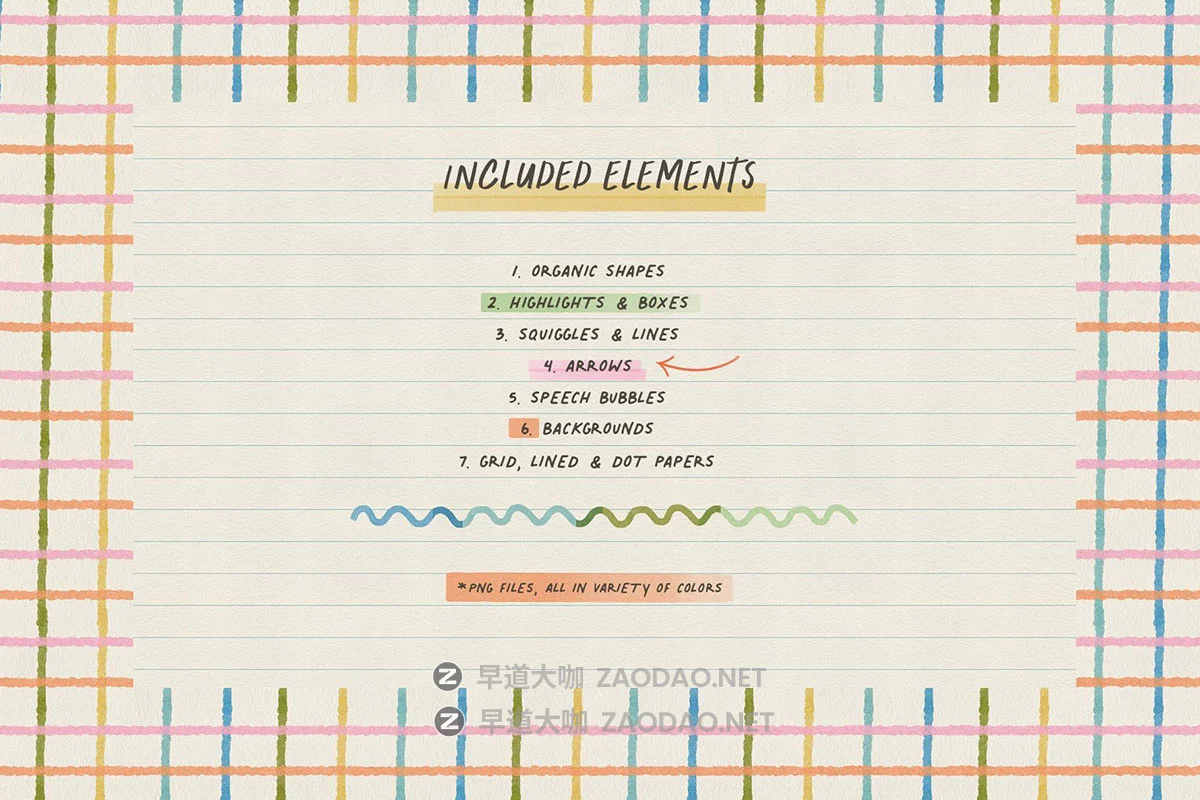 INCLUDED ELEMENTS
1. ORGANIC SHAPES
2. HIGHLIGHTS & BOXES
3. SQUIGGLES & LINES
4. ARROWS
5. SPEECH BUBBLES
6. BACKGROUNDS
7. GRID, LINED & DOT PAPERS
*PNG FILES, ALL IN VARIETY OF COLORS
Z 早道大咖 ZAODAO.NET
Z 早道大咖 ZAODAO.NET